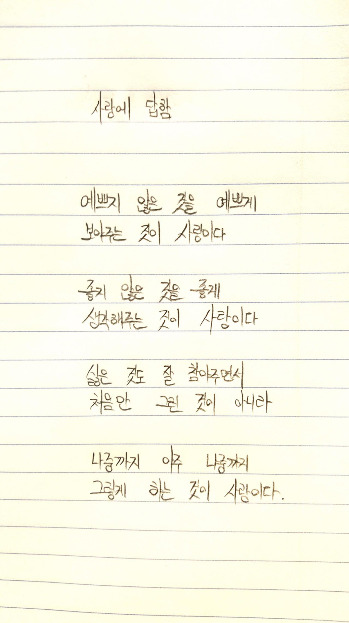 사랑에 답함
예쁘지 않은 것을 예쁘게
보아주는 것이 사랑이다
좋지 않은 것을 좋게
생각해주는 것이 사랑이다
싫은 것도 잘 참아주면서
처음만 그런 것이 아니라
나중까지 아주 나중까지
그렇게 하는 것이 사랑이다.